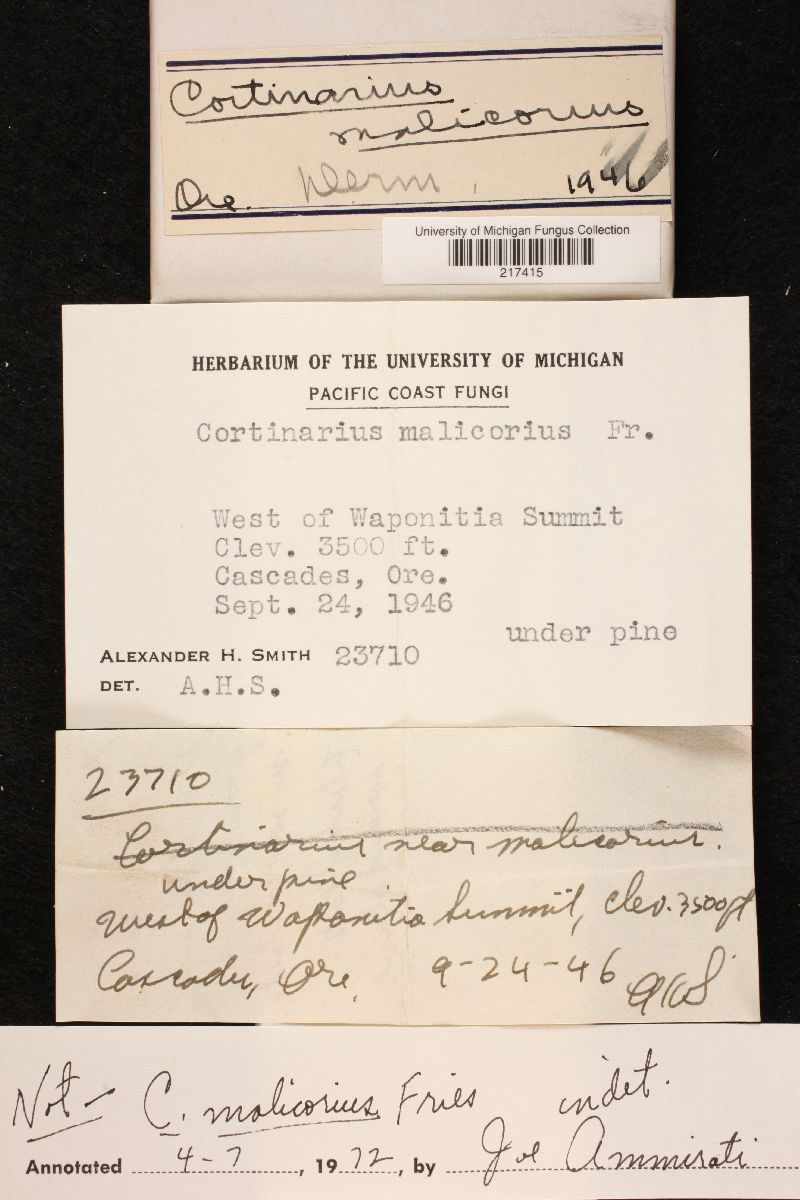 Cortinarius
malicorius
Ore. Derm. 1946
University of Michigan Fungus Collection
217415
HERBARIUM OF THE UNIVERSITY OF MICHIGAN
PACIFIC COAST FUNGI
Cortinarius malicorius Fr.
West of Waponitia Summit
Clev. 3500 ft.
Cascades, Ore.
Sept. 24, 1946
under pine
ALEXANDER H. SMITH 23710
DET. A.H.S.
23710
Cortinarius near malicorius.
under pine.
West of Waponitia Summit, Clev. 3500 ft
Cascades, Ore. 9-24-46 AHS
Not - C. malicorius Fries indet.
Annotated 4-7, 1972, by Joe Ammirati